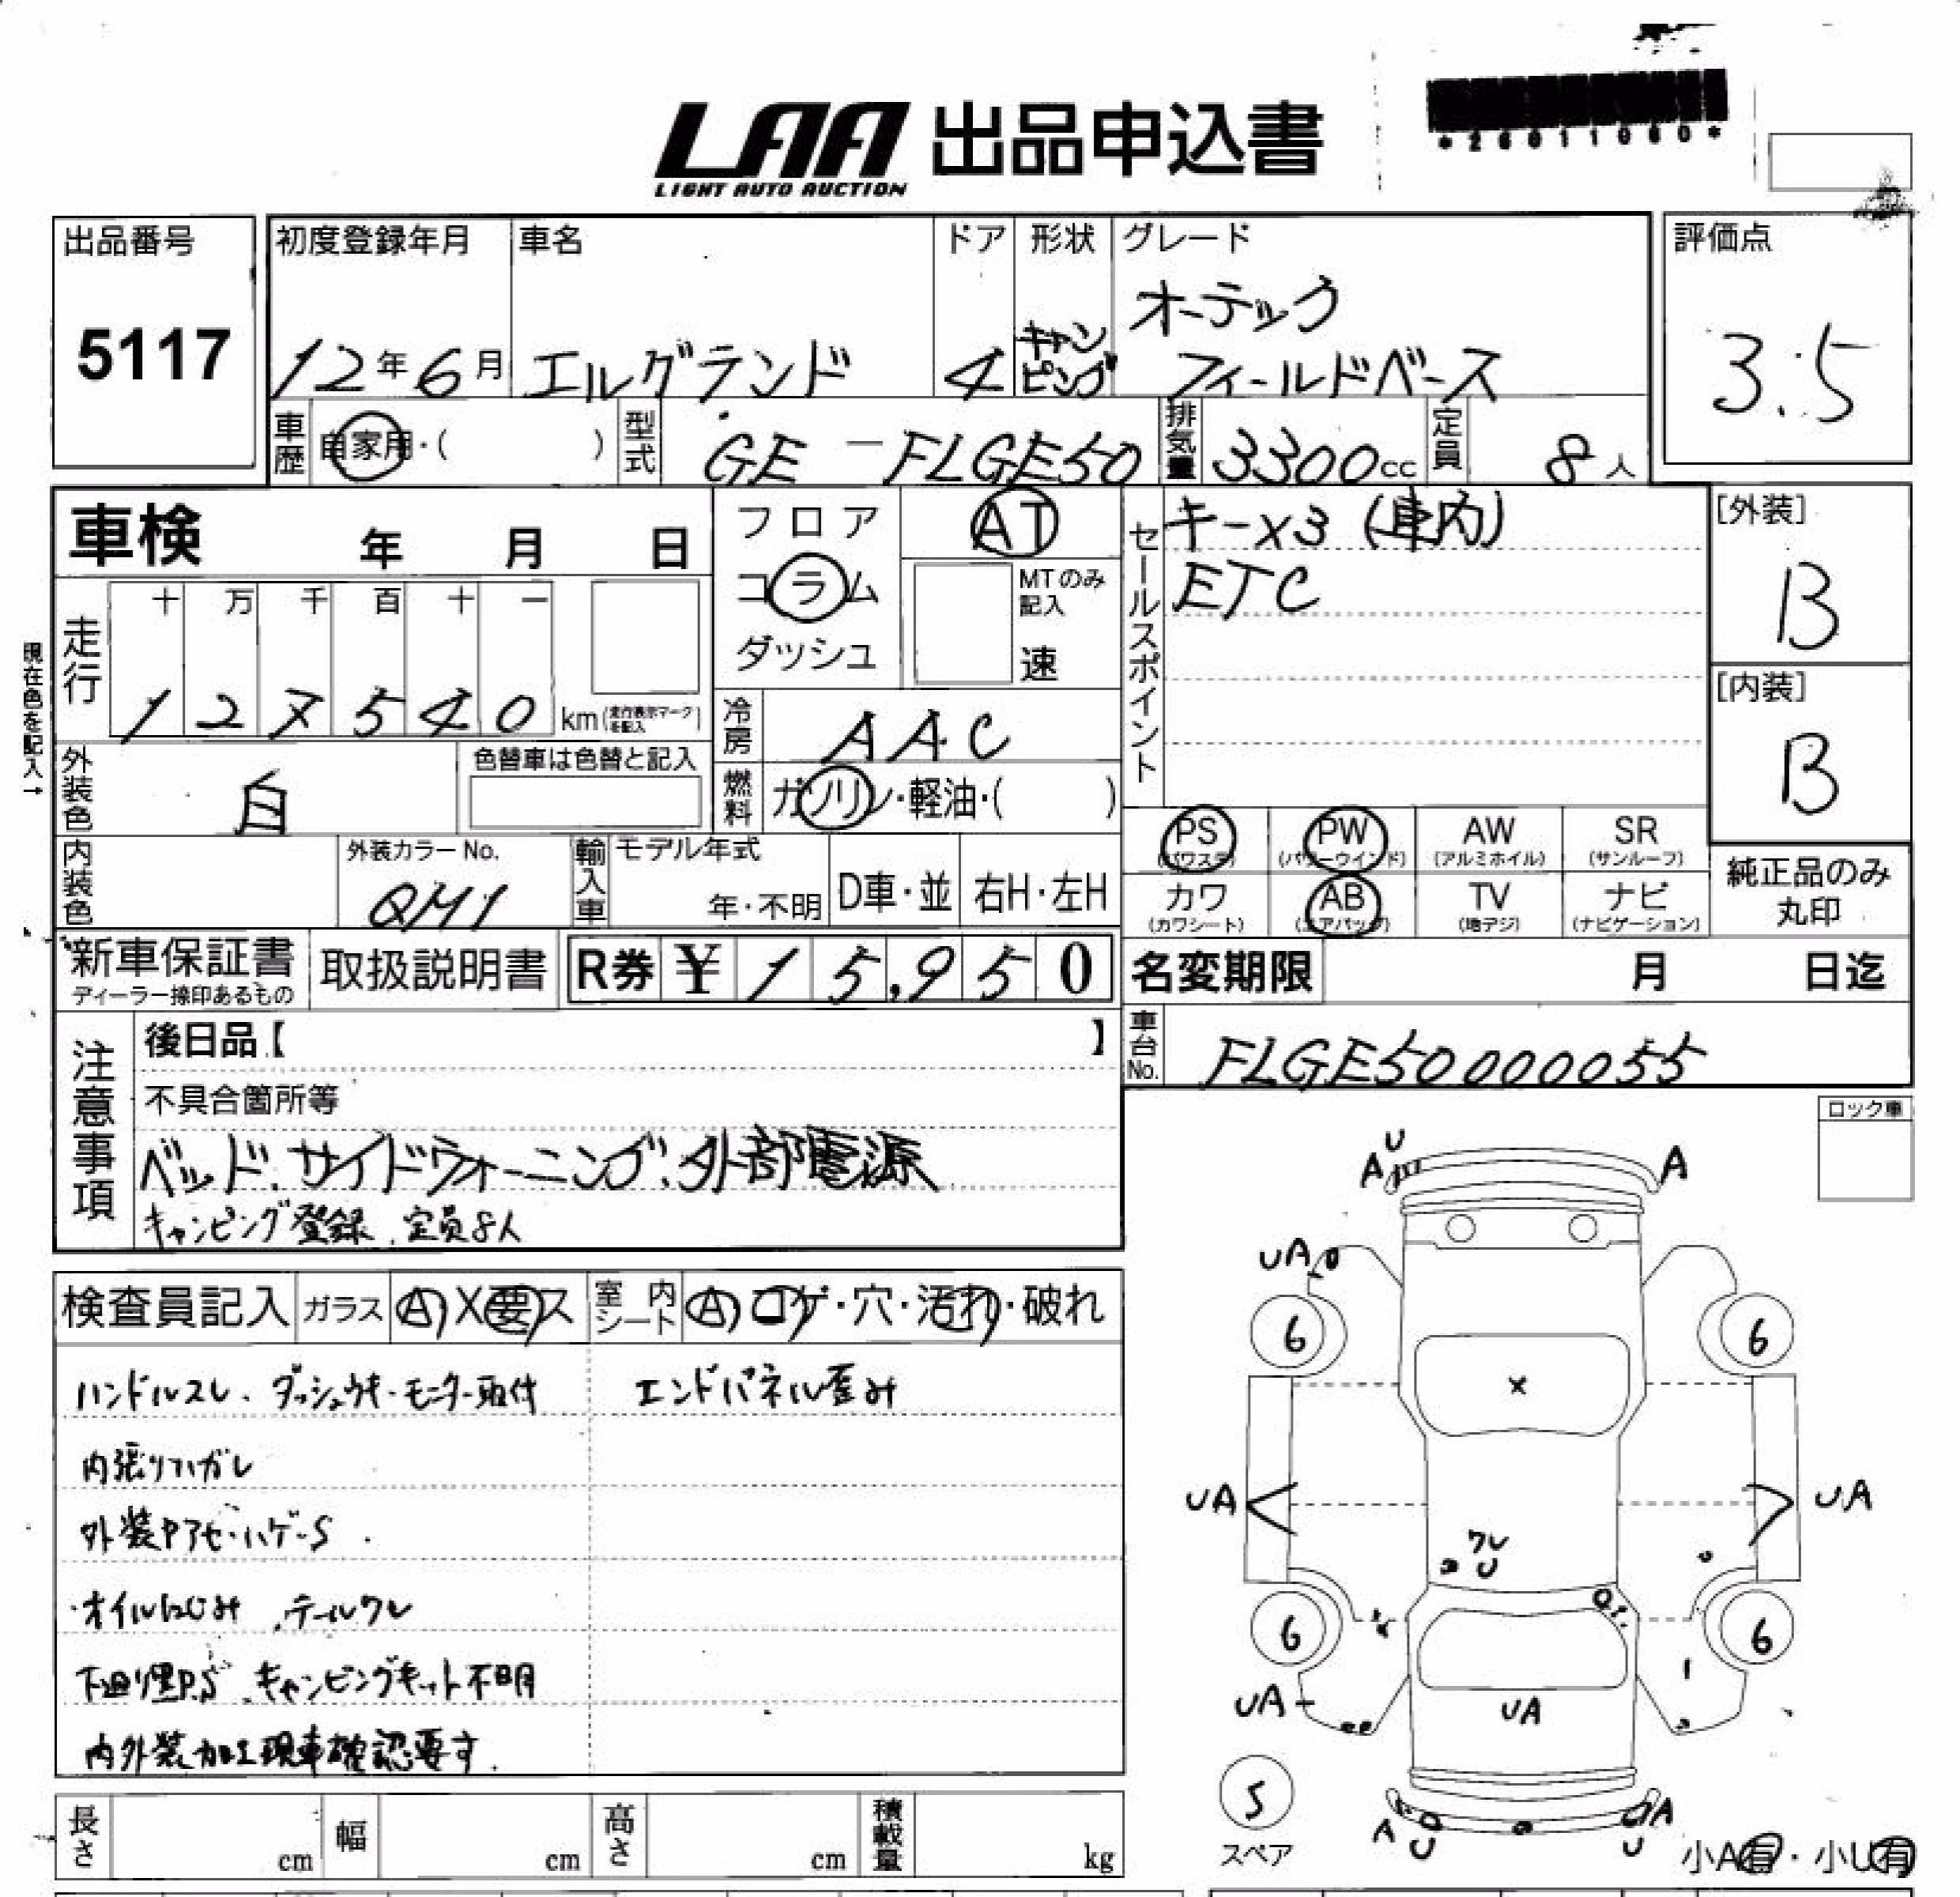 LAA 出品申込書
LIGHT AUTO AUCTION
*26011060*
出品番号 初度登録年月 車名 ドア 形状 グレード 評価点
5117 12年6月 エルグランド 4 キャンピング オーテック フィールドベース 3.5
車歴 自家用・( ) 型式 GE-FLGE50 排気量 3300cc 定員 8人
車検 年 月 日
フロア コラム ダッシュ
AT
MTのみ記入 速
セールスポイント
キーx3(車内)
ETC
[外装]
B
[内装]
B
現在色を記入↑
走行 十 万 千 百 十 一
127540 km(走行表示マークを記入)
冷房 AAC
外装色 白 色替車は色替と記入
燃料 ガソリン・軽油・( )
内装色 外装カラーNo. QM1
輸入車 モデル年式 年・不明 D車・並 右H・左H
PS(パワステ) PW(パワーウインド) AW(アルミホイル) SR(サンルーフ)
カワ(カワシート) AB(エアバッグ) TV(地デジ) ナビ(ナビゲーション)
純正品のみ丸印
新車保証書 ディーラー捺印あるもの 取扱説明書 R券 ¥15,950
名変期限 月 日迄
車台No. FLGE50000055
注意事項
後日品【 】
不具合箇所等
ベッド.サイドウォーニング.外部電源
キャンピング登録.定員8人
ロック車
検査員記入 ガラス A X 要 ス 室内シート A コゲ・穴・汚れ・破れ
ハンドルスレ、ダッシュウキ・モニター取付 エンドパネル歪み
内張りハガレ
外装ヤアセ・ハゲ・S
・オイルにじみ、テールワレ
下廻り黒P.S、キャンピングキット不明
内外装加工現車確認要す.
U
A A
UA
6 6
X
UA UA
ワレ
U
6 6
UA UA
5
スペア
A U A U
小A有・小U有
長さ cm 幅 cm 高さ cm 積載量 kg